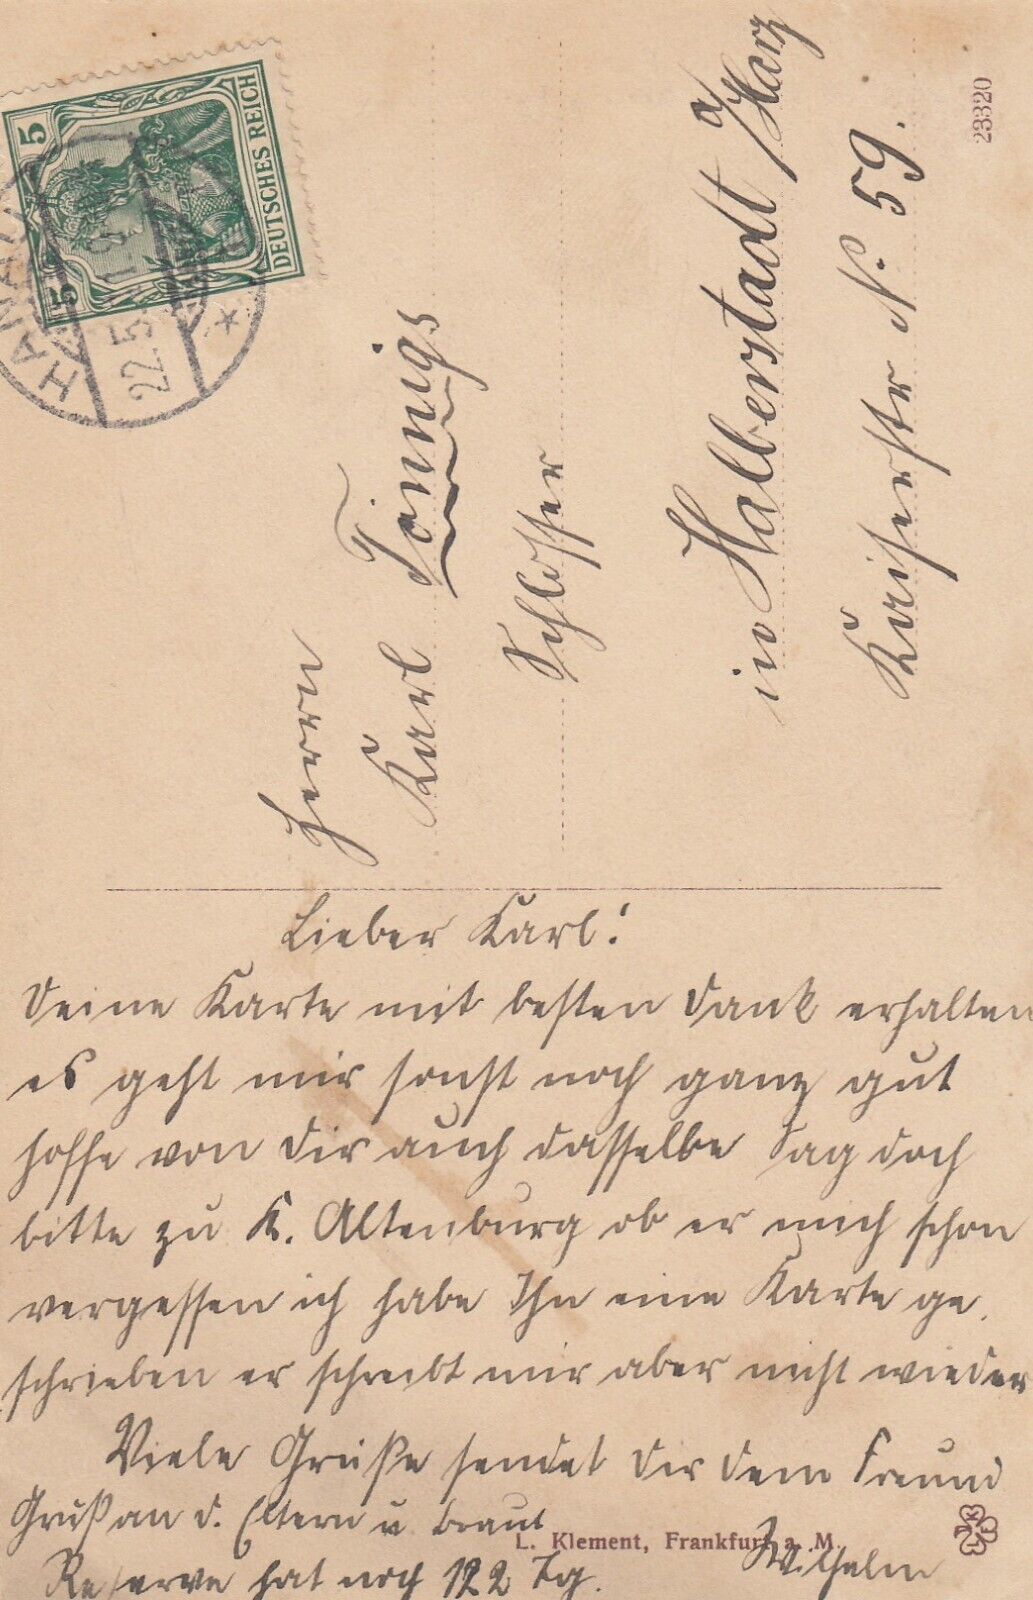 5
DEUTSCHES REICH
5
HANAU
22.5
23320
Herrn
Karl Tönnigs
Schlosser
in Halberstadt a/Harz
Kaiserstr N. 59.
Lieber Karl!
Deine Karte mit besten Dank erhalten
es geht mir sonst noch ganz gut
hoffe von Dir auch dasselbe Sag doch
bitte zu K. Altenburg ob er mich schon
vergessen ich habe Ihn eine Karte ge.
schrieben er schreibt mir aber nicht wieder
Viele Grüße sendet Dir dein Freund
Gruß an d. Eltern u Braut
Wilhelm
L. Klement, Frankfurt a. M.
Reserve hat noch 122 Tg.